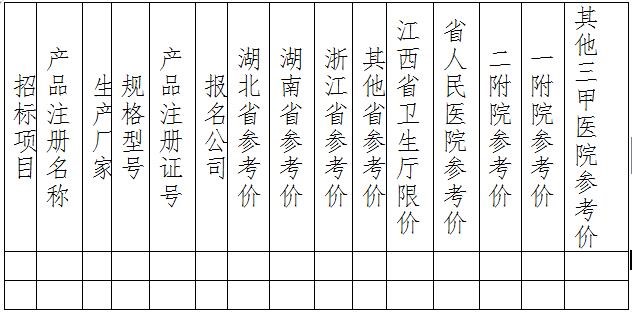 招标项目
产品注册名称
生产厂家
规格型号
产品注册证号
报名公司
湖北省参考价
湖南省参考价
浙江省参考价
其他省参考价
江西省卫生厅限价
省人民医院参考价
二附院参考价
一附院参考价
其他三甲医院参考价